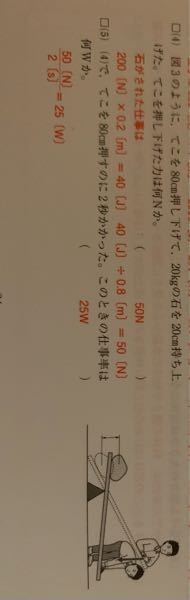 □(4) 図3のように,てこを80cm押し下げて,20kgの石を20cm持ち上
げた。てこを押し下げた力は何Nか。
石がされた仕事は ( 50N )
200〔N〕×0.2〔m〕=40〔J〕 40〔J〕÷0.8〔m〕=50〔N〕
□(5) (4)で,てこを80cm押すのに2秒かかった。このときの仕事率は
何Wか。 ( 25W )
50〔N〕/2〔s〕=25〔W〕